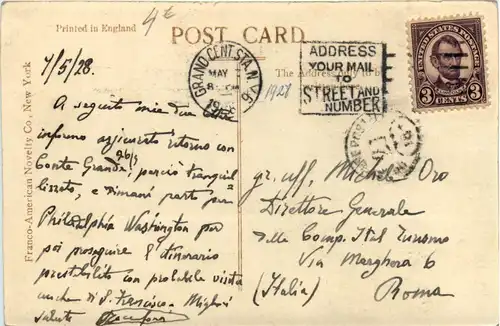 Printed in England
4 E
POST CARD
Franco-American Novelty Co., New York
The Address only to be
7/5/28.
A seguito mia
informo aggiunto ritorno con
Conte Grande, 26/5 perciò tranquil=
lizzato, e dimani parto per
Philadelphia Washington per
poi proseguire l'itinerario
prestabilito con probabile visita
anche a S. Francisco. Migliori
saluti
GRAND CENT. STA. N.Y.
MAY
8
1928
6
1928
ADDRESS
YOUR MAIL
TO
STREET AND
NUMBER
UNITED STATES POSTAGE
LINCOLN
3 CENTS 3
gr. uff. Michele Oro
Direttore Generale
della Comp. Ital Turismo
Via Marghera 6
(Italia) Roma